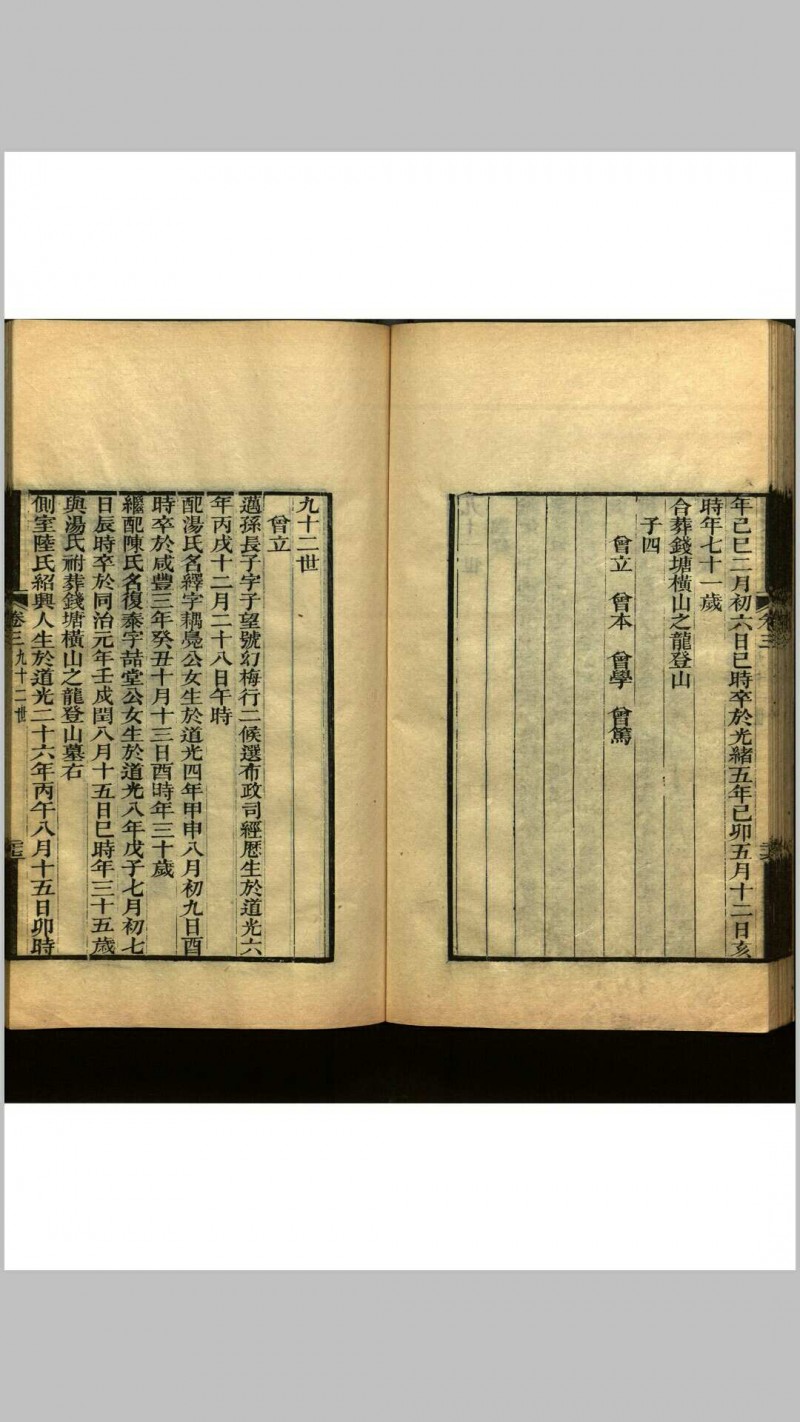 年己巳二月初六日巳時卒於光緒五年己卯五月十二日亥
時年七十一歲
合葬錢塘橫山之龍登山
子四
曾立 曾本 曾學 曾篤
卷三
九十二世
曾立
邁孫長子字子望號幻梅行二候選布政司經歷生於道光六
年丙戌十二月二十八日午時
配湯氏名繹字耦鳧公女生於道光四年甲申八月初九日酉
時卒於咸豐三年癸丑十月十三日酉時年三十歲
繼配陳氏名復秦字喆堂公女生於道光八年戊子七月初七
日辰時卒於同治元年壬戌閏八月十五日巳時年三十五歲
與湯氏祔葬錢塘橫山之龍登山墓右
側室陸氏紹興人生於道光二十六年丙午八月十五日卯時
卷三 九十二世